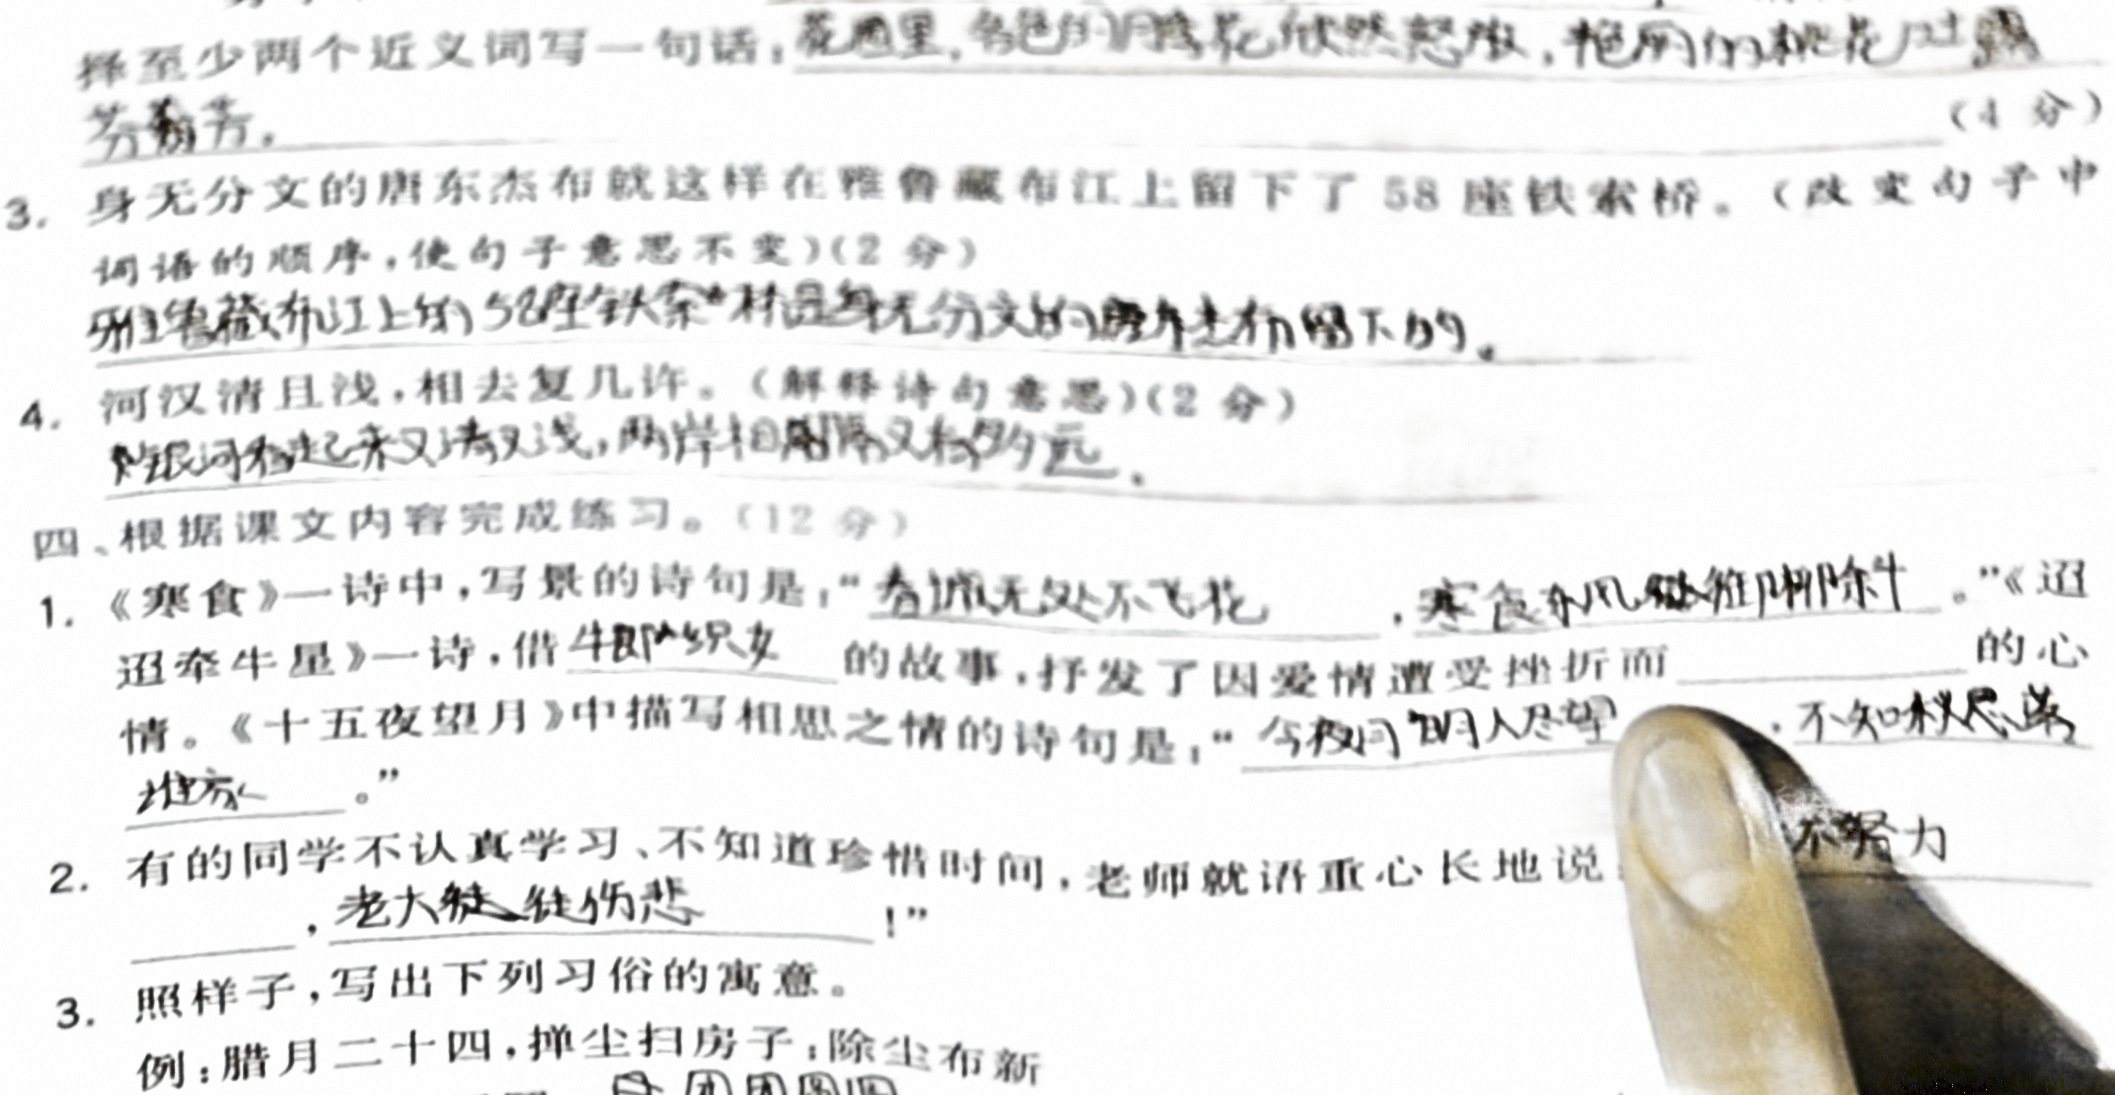 择至少两个近义词写一句话:花园里,各色的月季花欣然怒放,艳丽的桃花吐露
芬芳。 (4 分)
3. 身无分文的唐东杰布就这样在雅鲁藏布江上留下了 58 座铁索桥。(改变句子中
词语的顺序,使句子意思不变)(2 分)
雅鲁藏布江上的58座铁索桥是身无分文的唐东杰布留下的。
4. 河汉清且浅,相去复几许。(解释诗句意思)(2 分)
银河看起来又清又浅,两岸相隔又有多远。
四、根据课文内容完成练习。(12 分)
1. 《寒食》一诗中,写景的诗句是:“春城无处不飞花,寒食东风御柳斜。”《迢
迢牵牛星》一诗,借牛郎织女的故事,抒发了因爱情遭受挫折而 的心
情。《十五夜望月》中描写相思之情的诗句是:“今夜月明人尽望,不知秋思落
谁家。”
2. 有的同学不认真学习、不知道珍惜时间,老师就语重心长地说 不努力
,老大徒伤悲!”
3. 照样子,写出下列习俗的寓意。
例:腊月二十四,掸尘扫房子:除尘布新